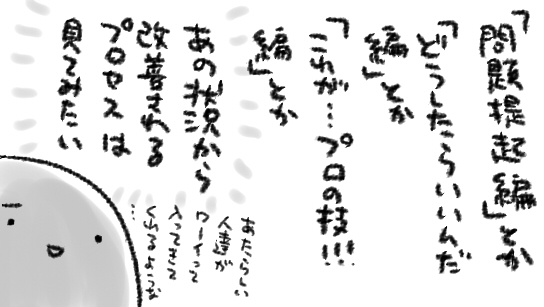 「問題提起編」とか
「どうしたらいいんだ
編」とか
「これが…プロの技!!!
編」とか
あの状況から
改善される
プロセスは
見てみたい
あたらしい
人達が
ワーイって
入ってきて
くれるような
…